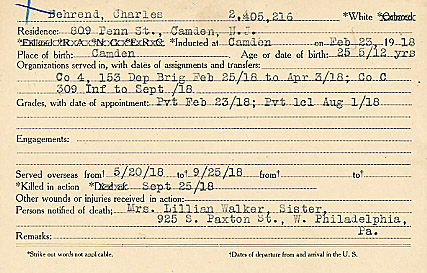 Behrend, Charles 2,405,216 *White *Colored
Residence: 809 Penn St., Camden, N.J.
*Enlisted *R.A. *N.G. *E.R.C. *Inducted at Camden on Feb 23, 1918
Place of birth: Camden Age or date of birth: 25 5/12 yrs
Organizations served in, with dates of assignments and transfers:
Co 4, 153 Dep Brig Feb 25/18 to Apr 3/18; Co C
309 Inf to Sept /18
Grades, with date of appointment: Pvt Feb 23/18; Pvt 1cl Aug 1/18
Engagements:
Served overseas from† 5/20/18 to† 9/25/18 from† to†
*Killed in action *Died of Sept 25/18
Other wounds or injuries received in action:
Persons notified of death: Mrs. Lillian Walker, Sister,
925 S. Paxton St., W. Philadelphia,
Pa.
Remarks:
*Strike out words not applicable. †Dates of departure from and arrival in the U. S.